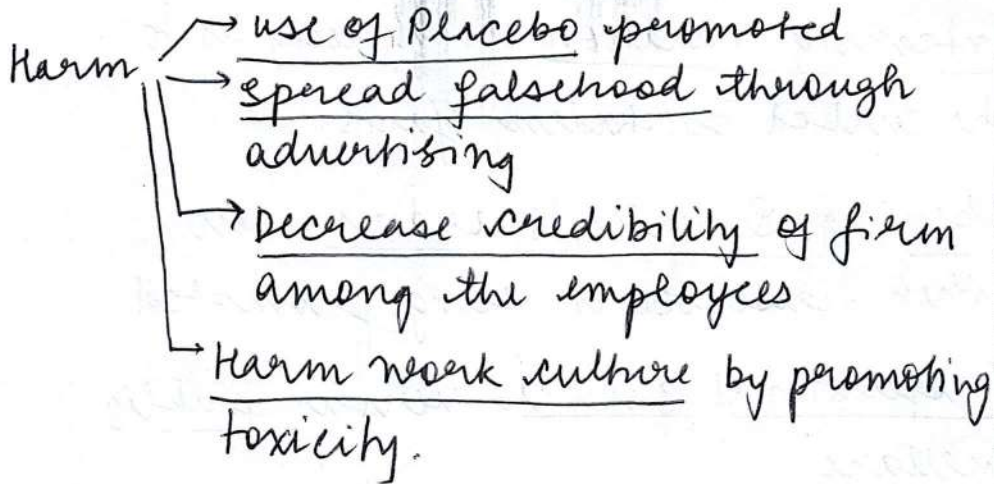 Harm → use of Placebo promoted
→ spread falsehood through
advertising
→ Decrease credibility of firm
among the employees
→ Harm work culture by promoting
toxicity.